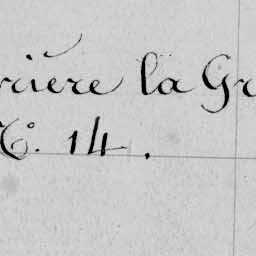 rière la Gr
N°. 14.